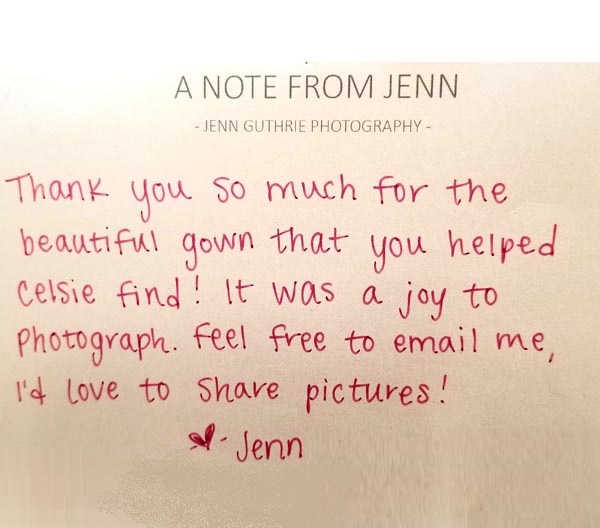 A NOTE FROM JENN
- JENN GUTHRIE PHOTOGRAPHY -
Thank you so much for the
beautiful gown that you helped
Celsie find! It was a joy to
photograph. Feel free to email me,
I'd love to share pictures!
♥- Jenn